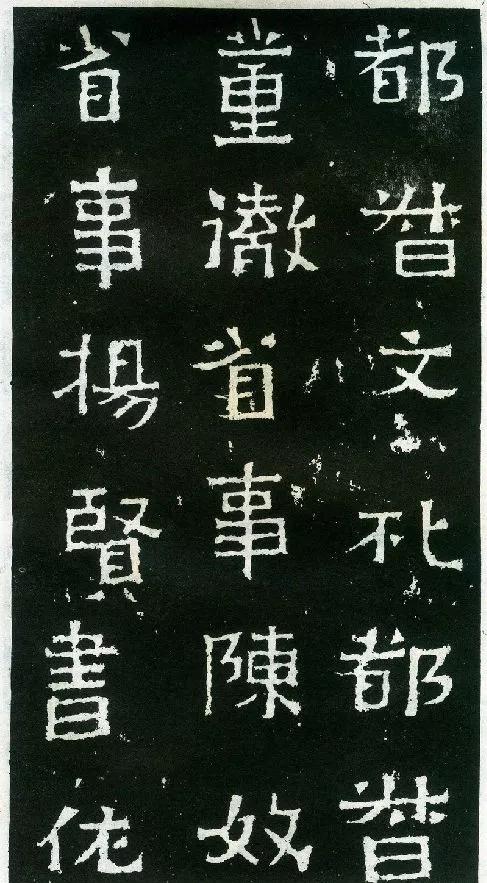 都督文礼都督
董徹省事陳奴
省事揚賢書佐